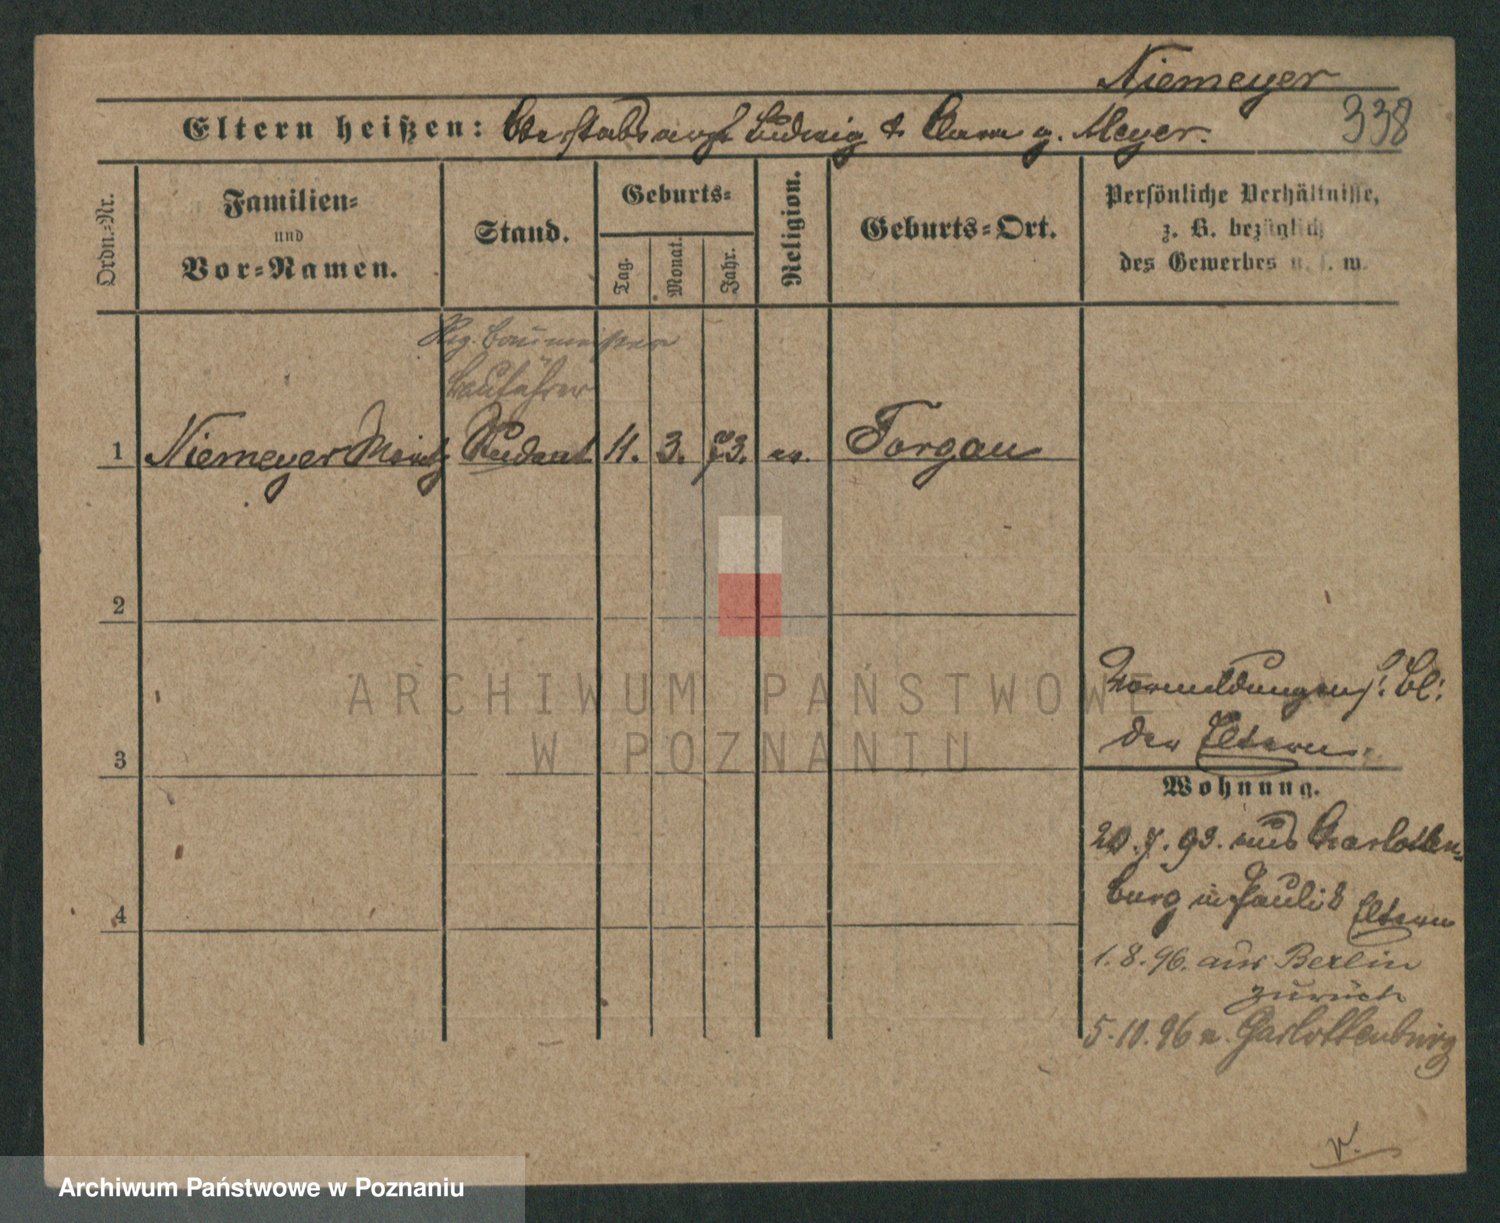 Niemeyer
Eltern heißen: Oberstabsarzt Ludwig & Clara g. Meyer.
338
Ordn.-Nr.
Familien-
und
Vor-Namen.
Stand.
Geburts-
Tag.
Monat.
Jahr.
Religion.
Geburts-Ort.
Persönliche Verhältnisse,
z. B. bezüglich
des Gewerbes u. s. w.
Reg. Baumeister
Bauführer
1 Niemeyer Moritz Student 11. 3. 73. ev. Torgau
2
3
4
Vormeldungen s. Bl.
der Eltern.
Wohnung.
20.7.93. aus Charlotten-
burg in Pauli 8 Eltern
1.8.96. aus Berlin
zurück
5.10.96 n. Charlottenburg
v.
ARCHIWUM PAŃSTWOWE
W POZNANIU
Archiwum Państwowe w Poznaniu